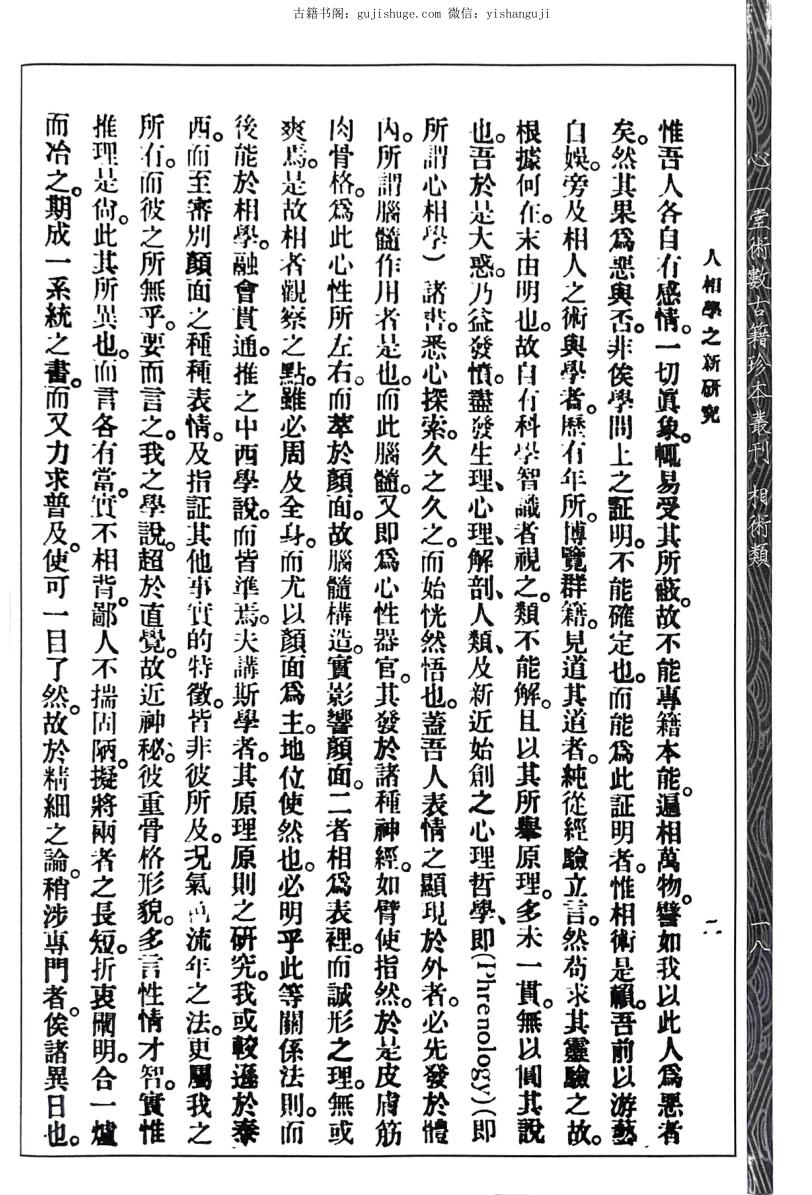 古籍书阁：gujishuge.com 微信：yishanguji
心一堂術數古籍珍本叢刊 相術類
一八
人相學之新研究
二
惟吾人各自有感情。一切眞象。輒易受其所蔽。故不能專籍本能。遍相萬物。譬如我以此人爲惡者
矣。然其果爲惡與否。非俟學問上之証明。不能確定也。而能爲此証明者。惟相術是賴。吾前以游藝
自娛。旁及相人之術與學者。歷有年所。博覽群籍。見道其道者。純從經驗立言。然苟求其靈驗之故。
根據何在。末由明也。故自有科學智識者視之。類不能解。且以其所舉原理。多未一貫。無以圓其說
也。吾於是大惑。乃益發憤。盡發生理、心理、解剖、人類、及新近始創之心理哲學、即(Phrenology)(即
所謂心相學)諸書。悉心探索。久之久之。而始恍然悟也。蓋吾人表情之顯現於外者。必先發於體
內。所謂腦髓作用者是也。而此腦髓。又即爲心性器官。其發於諸種神經。如臂使指然。於是皮膚筋
肉骨格。爲此心性所左右。而萃於顏面。故腦髓構造。實影響顏面。二者相爲表裡。而誠形之理。無或
爽焉。是故相者觀察之點。雖必周及全身。而尤以顏面爲主。地位使然也。必明乎此等關係法則。而
後能於相學。融會貫通。推之中西學說。而皆準焉。夫講斯學者。其原理原則之研究。我或較遜於泰
西。而至審別顏面之種種表情。及指証其他事實的特徵。皆非彼所及。况氣色流年之法。更屬我之
所有。而彼之所無乎。要而言之。我之學說。超於直覺。故近神秘。彼重骨格形貌。多言性情才智。實惟
推理是尙。此其所異也。而言各有當。實不相背。鄙人不揣固陋。擬將兩者之長短。折衷闡明。合一爐
而冶之。期成一系統之書。而又力求普及。使可一目了然。故於精細之論。稍涉專門者。俟諸異日也。